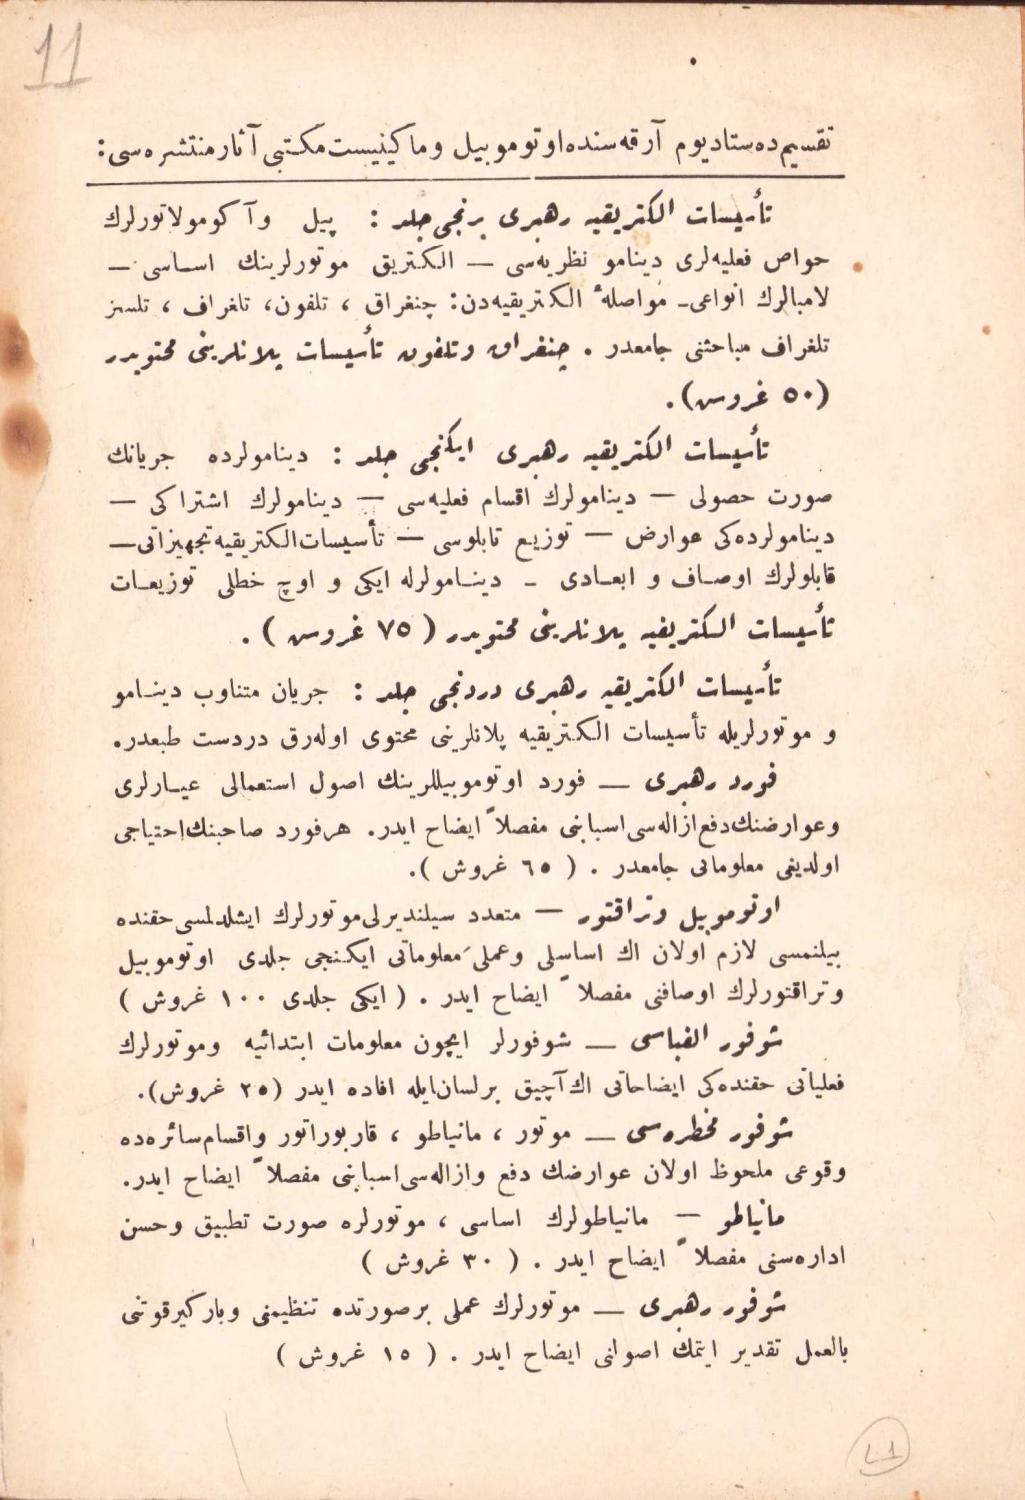 11
تقسيم‌ده ستاديوم آرقه‌سنده اوتوموبيل وماكينيست مكتبى آثار منتشره‌سى :
تأسيسات الكتريقيه رهبرى برنجى جلد : پيل وآكومولاتورلرك
خواص فعليه‌لرى دينامو نظريه‌سى — الكتريق موتورلرينك اساسى —
لامبالرك انواعى ـ مواصلهٔ الكتريقيه‌دن : چنغراق ، تلفون ، تلغراف ، تلسز
تلغراف مباحثنى جامعدر . چنغراق وتلفون تأسيسات پلانلرينى محتويدر
(٥٠ غروش) .
تأسيسات الكتريقيه رهبرى ايكنجى جلد : دينامولرده جريانك
صورت حصولى — دينامولرك اقسام فعليه‌سى — دينامولرك اشتراكى —
دينامولرده‌كى عوارض — توزيع تابلوسى — تأسيسات الكتريقيه تجهيزاتى —
قابلولرك اوصاف و ابعادى ـ دينامولرله ايكى و اوچ خطلى توزيعات
تأسيسات الكتريقيه پلانلرينى محتويدر ( ٧٥ غروش ) .
تأسيسات الكتريقيه رهبرى دردنجى جلد : جريان متناوب دينامو
و موتورلريله تأسيسات الكتريقيه پلانلرينى محتوى اوله‌رق دردست طبعدر .
فورد رهبرى — فورد اوتوموبيللرينك اصول استعمالى عيارلرى
وعوارضنك دفع ازاله‌سى اسبابنى مفصلاً ايضاح ايدر . هر فورد صاحبنك احتياجى
اولديغى معلوماتى جامعدر . ( ٦٥ غروش ) .
اوتوموبيل وتراقتور — متعدد سيلنديرلى موتورلرك ايشلدلمسى حقنده
بيلنمسى لازم اولان اك اساسلى وعملى معلوماتى ايكنجى جلدى اوتوموبيل
وتراقتورلرك اوصافنى مفصلاً ايضاح ايدر . ( ايكى جلدى ١٠٠ غروش )
شوفور الفباسى — شوفورلر ايچون معلومات ابتدائيه وموتورلرك
فعلياتى حقنده‌كى ايضاحاتى اك آچيق بر لسان ايله افاده ايدر (٢٥ غروش) .
شوفور مخطره‌سى — موتور ، مانياطو ، قاربوراتور واقسام سائره‌ده
وقوعى ملحوظ اولان عوارضك دفع وازاله‌سى اسبابنى مفصلاً ايضاح ايدر .
مانياطو — مانياطولرك اساسى ، موتورلره صورت تطبيق وحسن
اداره‌سنى مفصلاً ايضاح ايدر . ( ٣٠ غروش )
شوفور رهبرى — موتورلرك عملى بر صورتده تنظيمنى وباركير قوتنى
بالعمل تقدير ايتمك اصوانى ايضاح ايدر . ( ١٥ غروش )